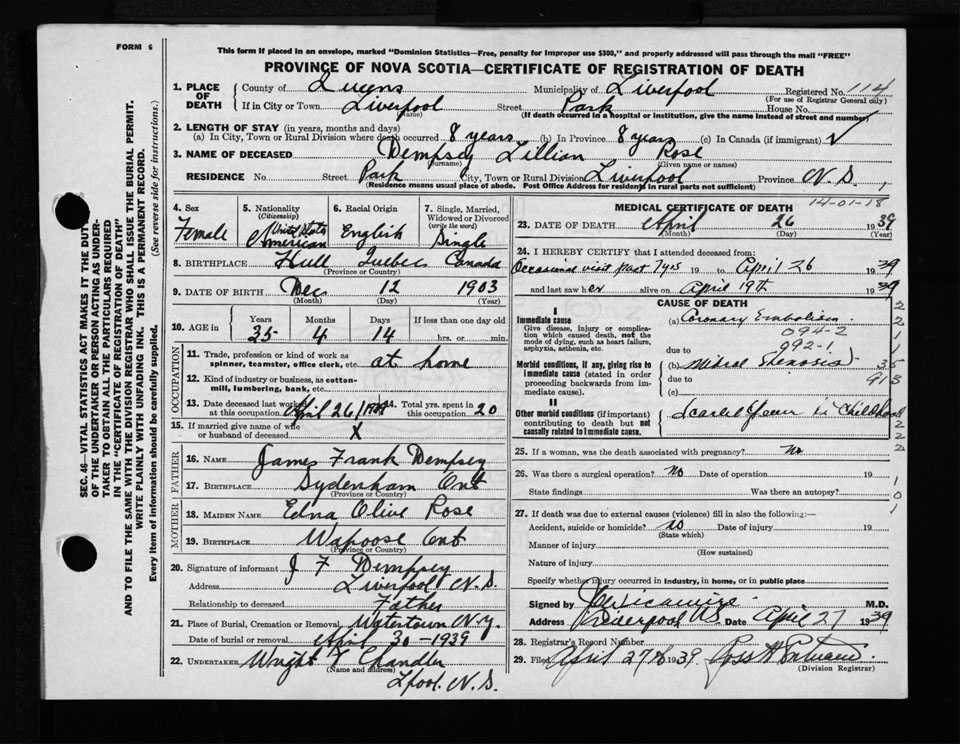 FORM 6
This form if placed in an envelope, marked "Dominion Statistics—Free, penalty for improper use $300," and properly addressed will pass through the mail "FREE"
PROVINCE OF NOVA SCOTIA—CERTIFICATE OF REGISTRATION OF DEATH
SEC. 46—VITAL STATISTICS ACT MAKES IT THE DUTY
OF THE UNDERTAKER OR PERSON ACTING AS UNDERTAKER TO OBTAIN ALL THE PARTICULARS REQUIRED
IN THE "CERTIFICATE OF REGISTRATION OF DEATH"
AND TO FILE THE SAME WITH THE DIVISION REGISTRAR WHO SHALL ISSUE THE BURIAL PERMIT.
WRITE PLAINLY WITH UNFADING INK. THIS IS A PERMANENT RECORD.
Every item of information should be carefully supplied. (See reverse side for instructions.)
1. PLACE OF DEATH County of Queens Municipality of Liverpool Registered No. 114
(For use of Registrar General only)
If in City or Town Liverpool Street Park House No.
(Name) (If death occurred in a hospital or institution, give the name instead of street and number)
2. LENGTH OF STAY (in years, months and days)
(a) In City, Town or Rural Division where death occurred 8 years (b) In Province 8 years (c) In Canada (if immigrant) ✓
3. NAME OF DECEASED Dempsey Lillian Rose
(Surname) (Given name or names)
RESIDENCE No. Street Park City, Town or Rural Division Liverpool Province N.S.
(Residence means usual place of abode. Post Office Address for residents in rural parts not sufficient)
4. Sex Female
5. Nationality (Citizenship) United States American
6. Racial Origin English
7. Single, Married, Widowed or Divorced (write the word) Single
8. BIRTHPLACE Hull Quebec Canada
(Province or Country)
9. DATE OF BIRTH Dec 12 1903
(Month) (Day) (Year)
10. AGE in Years Months Days If less than one day old
35 4 14 hrs. or min.
OCCUPATION
11. Trade, profession or kind of work as spinner, teamster, office clerk, etc. at home
12. Kind of industry or business, as cotton-mill, lumbering, bank, etc.
13. Date deceased last worked at this occupation April 26/1939 14. Total yrs. spent in this occupation 20
15. If married give name of wife or husband of deceased X
FATHER
16. NAME James Frank Dempsey
17. BIRTHPLACE Sydenham Ont
(Province or Country)
MOTHER
18. MAIDEN NAME Edna Olive Rose
19. BIRTHPLACE Wapoose Ont
(Province or Country)
20. Signature of informant J F Dempsey
Address Liverpool N.S.
Relationship to deceased Father
21. Place of Burial, Cremation or Removal Watertown N.Y.
Date of burial or removal April 30-1939
22. UNDERTAKER Wright & Chandler
(Name and address)
L'pool. N.S.
MEDICAL CERTIFICATE OF DEATH
14-01-18
23. DATE OF DEATH April 26 1939
(Month) (Day) (Year)
24. I HEREBY CERTIFY that I attended deceased from:
Occasional visit past 7 yrs 19 to April 26 1939
and last saw her alive on April 19th 1939
CAUSE OF DEATH
I
Immediate cause
Give disease, injury or complication which caused death, not the mode of dying, such as heart failure, asphyxia, asthenia, etc.
(a) Coronary Embolism
094-2
092-1
due to
Morbid conditions, if any, giving rise to immediate cause (stated in order proceeding backwards from immediate cause).
(b) Mitral Stenosis
due to
(c)
II
Other morbid conditions (if important) contributing to death but not causally related to immediate cause.
Scarlet Fever in Childhood
25. If a woman, was the death associated with pregnancy? No
26. Was there a surgical operation? No Date of operation 19
State findings Was there an autopsy?
27. If death was due to external causes (violence) fill in also the following:—
Accident, suicide or homicide? no Date of injury 19
(State which)
Manner of injury
(How sustained)
Nature of injury
Specify whether injury occurred in industry, in home, or in public place
Signed by M.D.
Address Liverpool N.S. Date April 27 1939
28. Registrar's Record Number
29. Filed April 27th 1939
(Division Registrar)